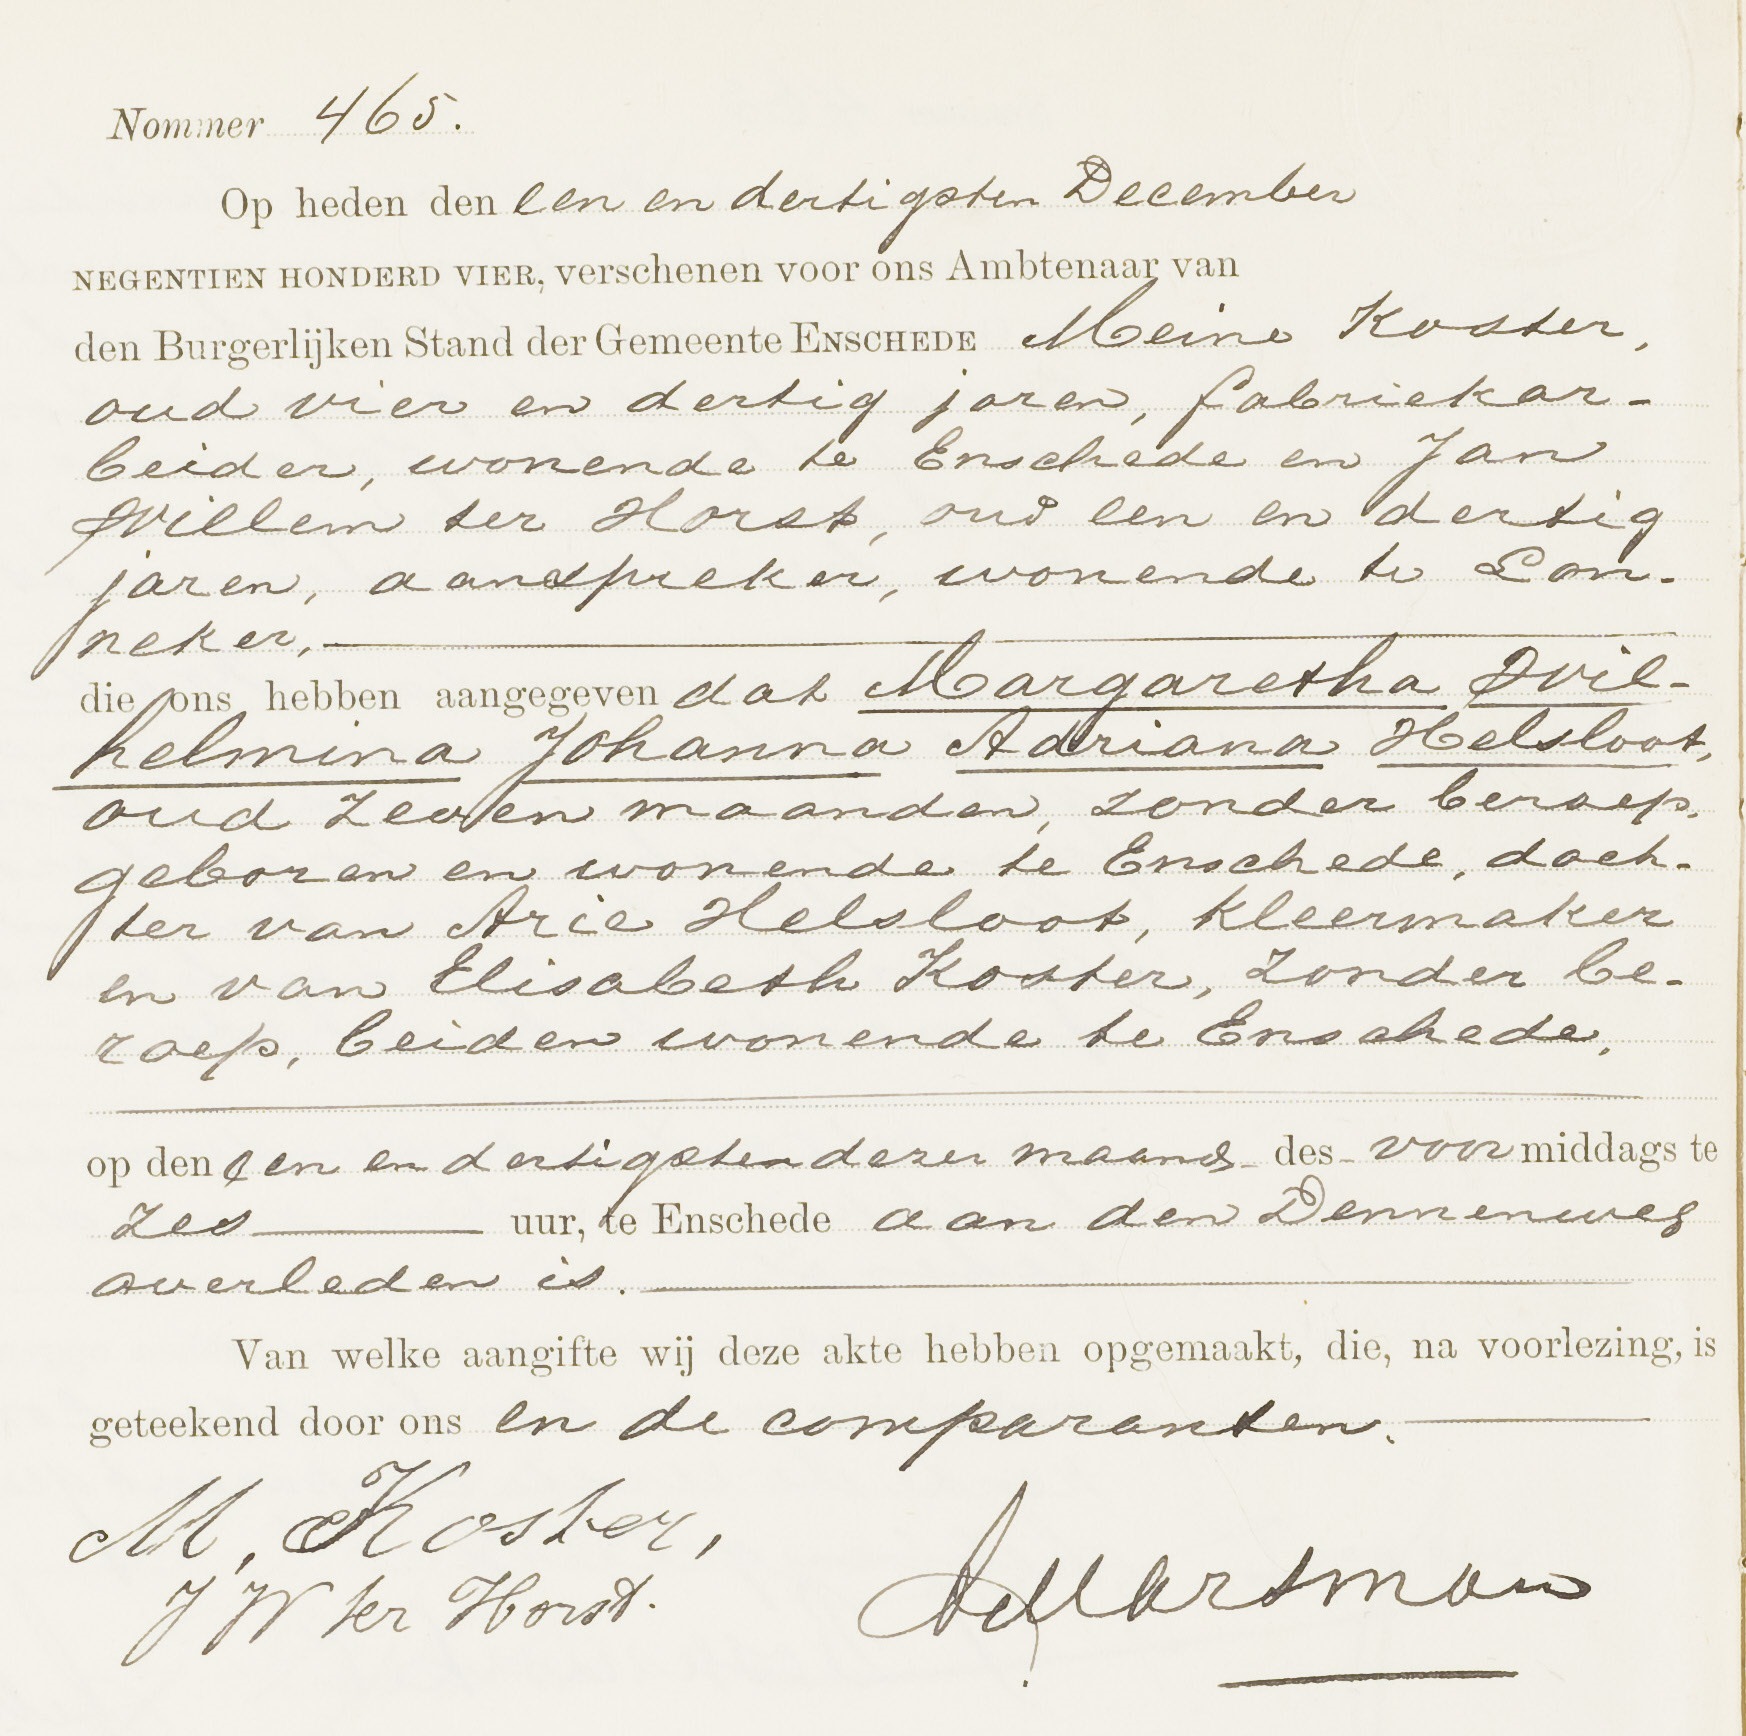 Nommer 465.
Op heden den een en dertigsten December
NEGENTIEN HONDERD VIER, verschenen voor ons Ambtenaar van
den Burgerlijken Stand der Gemeente ENSCHEDE Meine Koster,
oud vier en dertig jaren, fabriekar-
beider, wonende te Enschede en Jan
Willem ter Horst, oud een en dertig
jaren, aanspreker, wonende te Lon-
neker,
die ons hebben aangegeven dat Margaretha Wil-
helmina Johanna Adriana Helsloot,
oud zeven maanden, zonder beroep,
geboren en wonende te Enschede, doch-
ter van Arie Helsloot, kleermaker
en van Elisabeth Koster, zonder be-
roep, beiden wonende te Enschede,
op den een en dertigsten dezer maand des voormiddags te
zes uur, te Enschede aan den Dennenweg
overleden is.
Van welke aangifte wij deze akte hebben opgemaakt, die, na voorlezing, is
geteekend door ons en de comparanten.
M, Koster,
J W ter Horst.